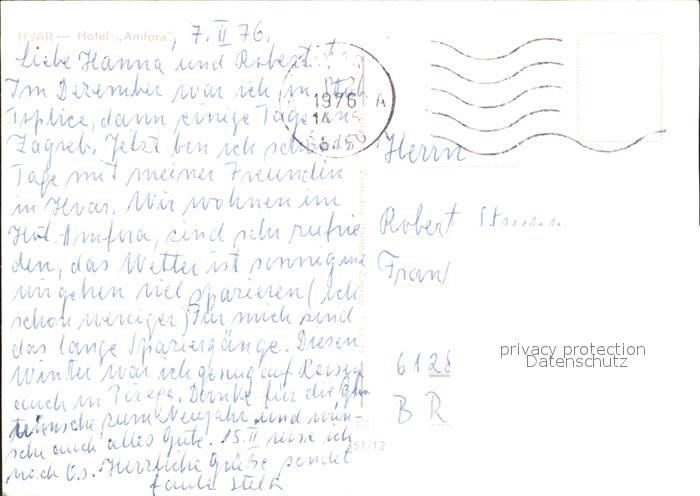 HVAR — Hotel „Amfora"
, 7. II 76.
Liebe Hanna und Robert!
Im Dezember war ich in Stub.
Toplice, dann einige Tage in
Zagreb. Jetzt bin ich schon 15
Tage mit meiner Freundin
in Hvar. Wir wohnen im
Hot. Amfora, sind sehr zufrie
den, das Wetter ist sonnig und
wir gehen viel spazieren (ich
schon weniger) Für mich sind
das lange Spaziergänge. Diesen
Winter war ich genug auf Reisen
auch in Danke für die
wünsche zum Neujahr und wün-
sche auch alles Gute. 15.II reise ich
nach Os. Herzliche Grüße sendet
1976
14
A
Herrn
Robert
Fran
6128
B R
51/12
privacy protection
Datenschutz